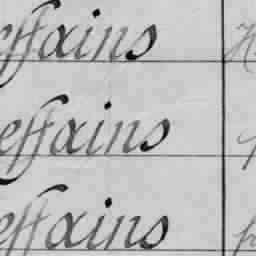 effains
effains
effains